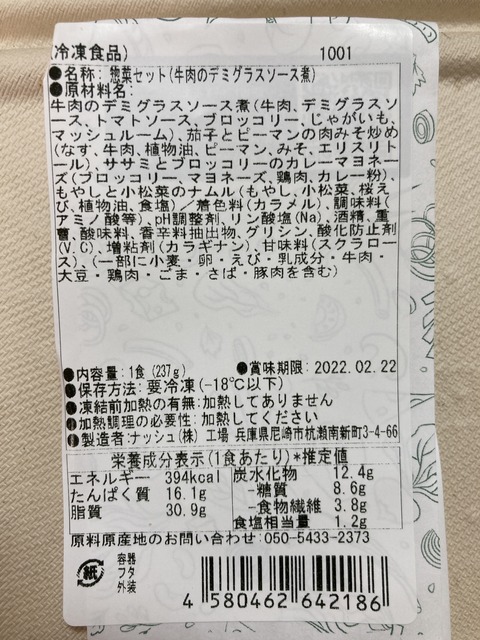 (冷凍食品) 1001
●名称: 惣菜セット(牛肉のデミグラスソース煮)
●原材料名:
牛肉のデミグラスソース煮(牛肉、デミグラスソ
ース、トマトソース、ブロッコリー、じゃがいも、
マッシュルーム)、茄子とピーマンの肉みそ炒め
(なす、牛肉、植物油、ピーマン、みそ、エリスリト
ール)、ササミとブロッコリーのカレーマヨネー
ズ(ブロッコリー、マヨネーズ、鶏肉、カレー粉)、
もやしと小松菜のナムル(もやし、小松菜、桜え
び、植物油、食塩)／着色料(カラメル)、調味料(
アミノ酸等)、pH調整剤、リン酸塩(Na)、酒精、重
曹、酸味料、香辛料抽出物、グリシン、酸化防止剤
(V.C)、増粘剤(カラギナン)、甘味料(スクラロー
ス)、(一部に小麦・卵・えび・乳成分・牛肉・
大豆・鶏肉・ごま・さば・豚肉を含む)
●内容量: 1食(237g) ●賞味期限: 2022.02.22
●保存方法: 要冷凍(-18℃以下)
●凍結前加熱の有無: 加熱してありません
●加熱調理の必要性: 加熱してください
●製造者: ナッシュ(株) 工場 兵庫県尼崎市杭瀬南新町3-4-66
栄養成分表示(1食あたり)*推定値
エネルギー 394kcal 炭水化物 12.4g
たんぱく質 16.1g -糖質 8.6g
脂質 30.9g -食物繊維 3.8g
食塩相当量 1.2g
原料原産地のお問い合わせ: 050-5433-2373
紙 容器
フタ
外装
4 580462 642186